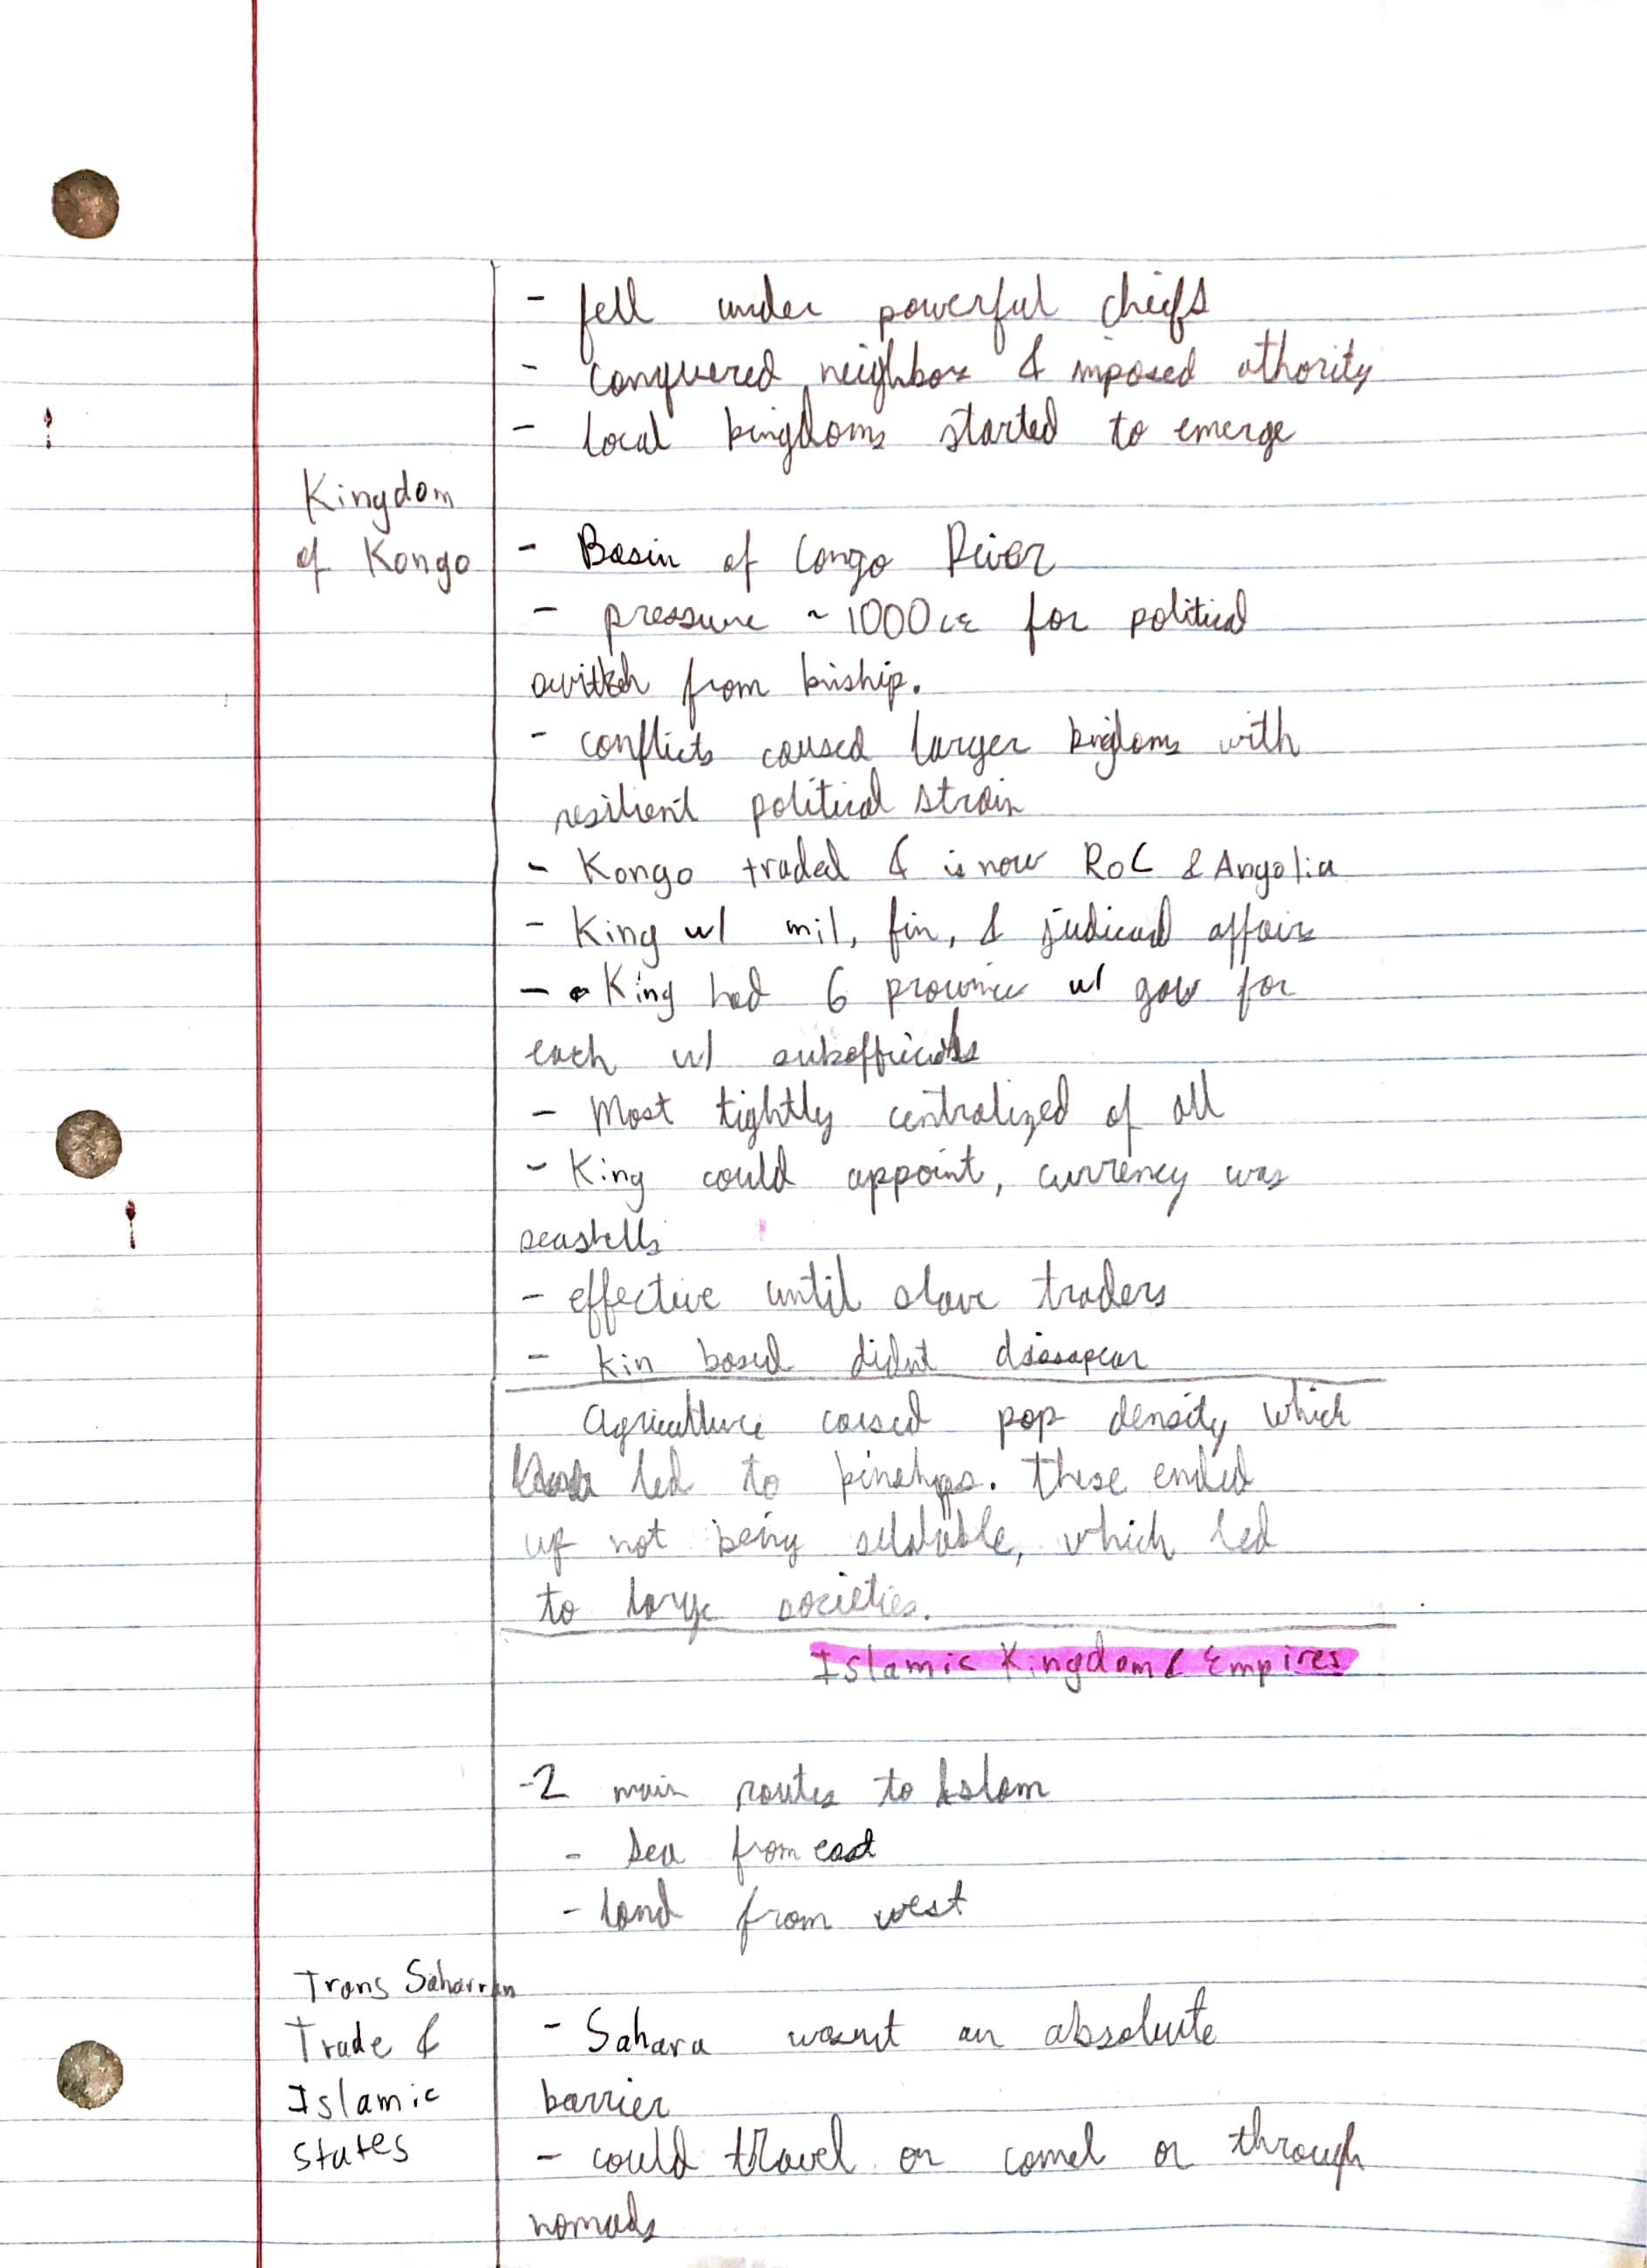 - fell under powerful chiefs
- conquered neighbors & imposed athority
- local kingdoms started to emerge
Kingdom
of Kongo
- Basin of Congo River
- pressure ~1000 CE for political
switch from kinship.
- conflicts caused larger kingdoms with
resilient political strain
- Kongo traded & is now RoC & Angolia
- King w/ mil, fin, & judicial affairs
- King had 6 provinces w/ govs for
each w/ subofficials
- Most tightly centralized of all
- King could appoint, currency was
seashells
- effective until slave traders
- kin based didnt dissapear
Agriculture caused pop density which
led to kinships. These ended
up not being which led
to large societies.
Islamic Kingdom & Empires
-2 main routes to Islam
- Sea from east
- land from west
Trans Saharran
Trade &
Islamic
States
- Sahara wasnt an absolute
barrier
- could travel on camel or through
nomads